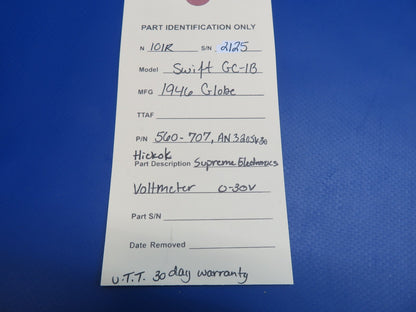 PART IDENTIFICATION ONLY
N 101R S/N 2125
Model Swift GC-1B
MFG 1946 Globe
TTAF
P/N 560-707, AN3205V30
Hickok
Part Description Supreme Electronics
Voltmeter 0-30V
Part S/N
Date Removed
U.T.T. 30 day warranty